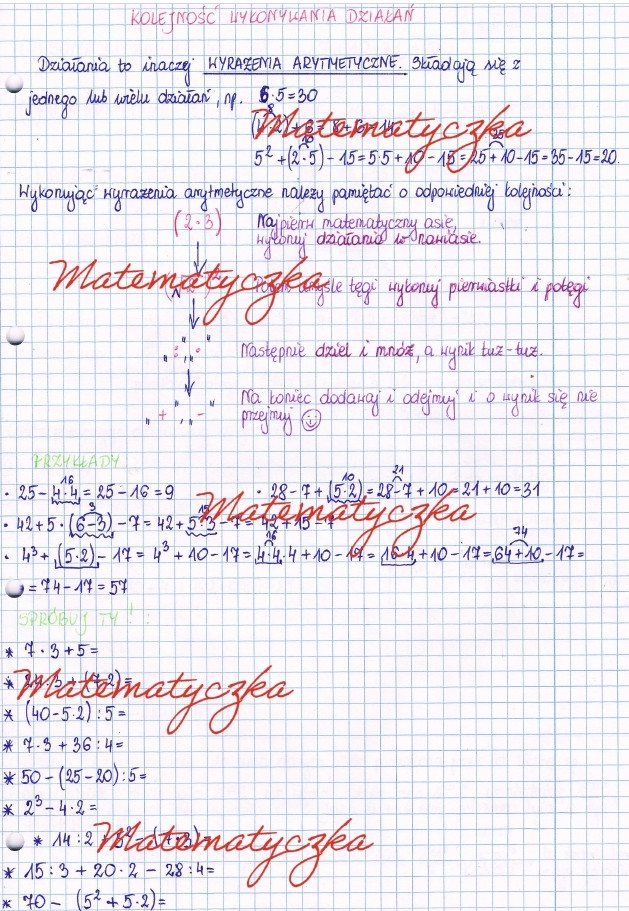 KOLEJNOŚĆ WYKONYWANIA DZIAŁAŃ
Działania to inaczej WYRAŻENIA ARYTMETYCZNE. Składają się z
jednego lub wielu działań, np. 6·5=30
Matematyczka
5² + (2·5) - 15 = 5·5 + 10 - 15 = 25 + 10 - 15 = 35 - 15 = 20.
Wykonując wyrażenia arytmetyczne należy pamiętać o odpowiedniej kolejności:
(2·3) Najpierw matematyczny asie,
wykonuj działania w nawiasie.
Matematyczka
tęgi wykonuj pierwiastki i potęgi
" : " , " · " Następnie dziel i mnóż, a wynik tuż-tuż.
" + " , " - " Na koniec dodawaj i odejmuj i o wynik się nie
przejmuj
PRZYKŁADY
16
· 25 - 4·4 = 25 - 16 = 9
10 21
· 28 - 7 + (5·2) = 28 - 7 + 10 = 21 + 10 = 31
3 15
· 42 + 5 · (6-3) - 7 = 42 + 5·3 - 7 = 42 + 15 - 7
Matematyczka
16 74
· 4³ + (5·2) - 17 = 4³ + 10 - 17 = 4·4·4 + 10 - 17 = 16·4 + 10 - 17 = 64 + 10 - 17 =
= 74 - 17 = 57
SPRÓBUJ TY! :
* 7·3 + 5 =
Matematyczka
* (40 - 5·2) : 5 =
* 7·3 + 36 : 4 =
* 50 - (25 - 20) : 5 =
* 2³ - 4·2 =
* 14 : 2
Matematyczka
* 15 : 3 + 20·2 - 28 : 4 =
* 70 - (5² + 5·2) =